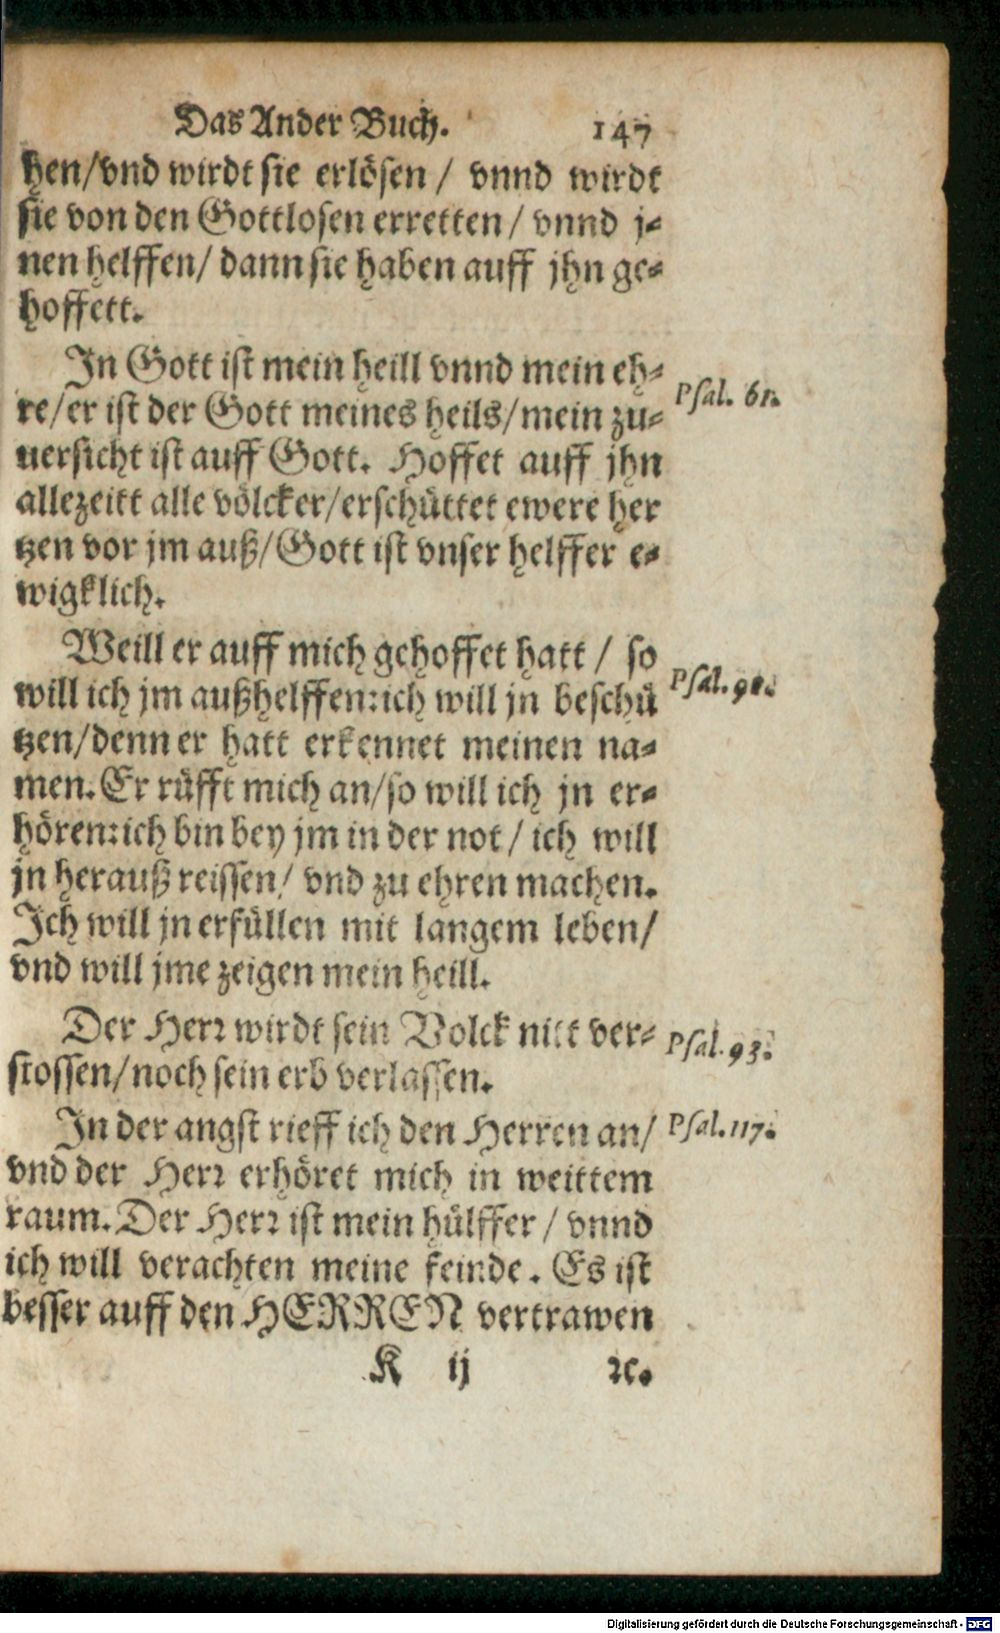 Das Ander Buch. 147
hen/vnd wirdt sie erlösen / vnnd wirdt
sie von den Gottlosen erretten/ vnnd j-
nen helffen/ dann sie haben auff jhn ge-
hoffett.
In Gott ist mein heill vnnd mein eh-
re/er ist der Gott meines heils/mein zu-
uersicht ist auff Gott. Hoffet auff jhn
allezeitt alle völcker/erschüttet ewere her
tzen vor jm auß/Gott ist vnser helffer e-
wigklich.
Psal. 61.
Weill er auff mich gehoffet hatt / so
will ich jm außhelffen:ich will jn beschü
tzen/denn er hatt erkennet meinen na-
men. Er rüfft mich an/so will ich jn er-
hören:ich bin bey jm in der not/ ich will
jn herauß reissen/ vnd zu ehren machen.
Ich will jn erfüllen mit langem leben/
vnd will jme zeigen mein heill.
Psal. 91.
Der Herr wirdt sein Volck nitt ver-
stossen/noch sein erb verlassen.
Psal. 93.
In der angst rieff ich den Herren an/
vnd der Herr erhöret mich in weittem
raum. Der Herr ist mein hülffer / vnnd
ich will verachten meine feinde. Es ist
besser auff den HERREN vertrawen
Psal. 117.
K ij ꝛc.
Digitalisierung gefördert durch die Deutsche Forschungsgemeinschaft - DFG